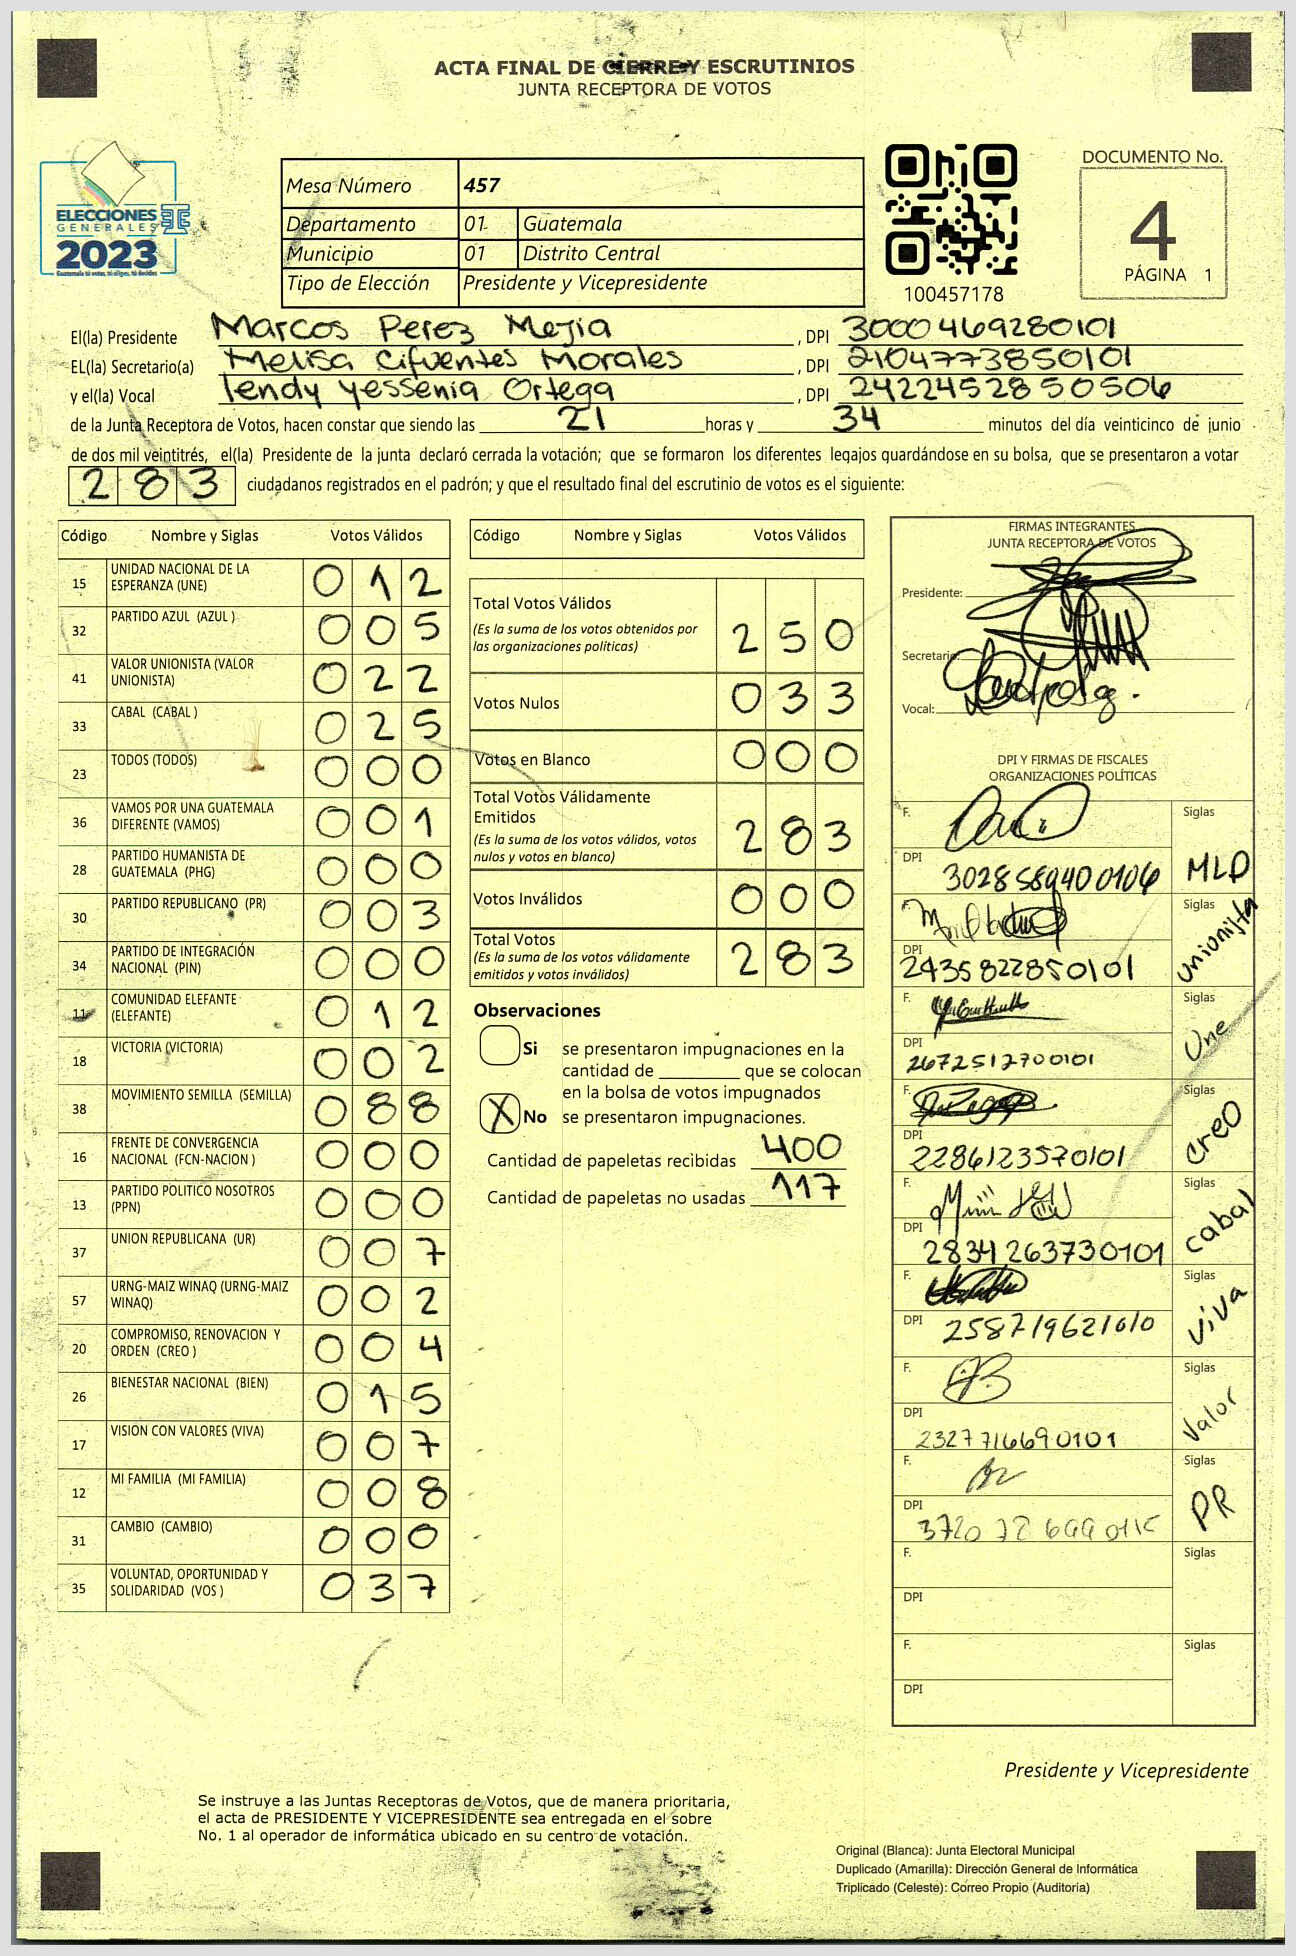 ACTA FINAL DE CIERRE Y ESCRUTINIOS
JUNTA RECEPTORA DE VOTOS
ELECCIONES
GENERALES
2023
Guatemala tú votas, tú eliges, tú decides
Mesa Número 457
Departamento 01 Guatemala
Municipio 01 Distrito Central
Tipo de Elección Presidente y Vicepresidente
100457178
DOCUMENTO No.
4
PÁGINA 1
El(la) Presidente Marcos Perez Mejia, DPI 3000469280101
EL(la) Secretario(a) Melisa Cifuentes Morales, DPI 2104773850101
y el(la) Vocal lendy yessenia Ortega, DPI 2422452850506
de la Junta Receptora de Votos, hacen constar que siendo las 21 horas y 34 minutos del día veinticinco de junio
de dos mil veintitrés, el(la) Presidente de la junta declaró cerrada la votación; que se formaron los diferentes legajos guardándose en su bolsa, que se presentaron a votar
283 ciudadanos registrados en el padrón; y que el resultado final del escrutinio de votos es el siguiente:
Código Nombre y Siglas Votos Válidos
15 UNIDAD NACIONAL DE LA ESPERANZA (UNE) 012
32 PARTIDO AZUL (AZUL ) 005
41 VALOR UNIONISTA (VALOR UNIONISTA) 022
33 CABAL (CABAL ) 025
23 TODOS (TODOS) 000
36 VAMOS POR UNA GUATEMALA DIFERENTE (VAMOS) 001
28 PARTIDO HUMANISTA DE GUATEMALA (PHG) 000
30 PARTIDO REPUBLICANO (PR) 003
34 PARTIDO DE INTEGRACIÓN NACIONAL (PIN) 000
11 COMUNIDAD ELEFANTE (ELEFANTE) 012
18 VICTORIA (VICTORIA) 002
38 MOVIMIENTO SEMILLA (SEMILLA) 088
16 FRENTE DE CONVERGENCIA NACIONAL (FCN-NACION ) 000
13 PARTIDO POLITICO NOSOTROS (PPN) 000
37 UNION REPUBLICANA (UR) 007
57 URNG-MAIZ WINAQ (URNG-MAIZ WINAQ) 002
20 COMPROMISO, RENOVACION Y ORDEN (CREO ) 004
26 BIENESTAR NACIONAL (BIEN) 015
17 VISION CON VALORES (VIVA) 007
12 MI FAMILIA (MI FAMILIA) 008
31 CAMBIO (CAMBIO) 000
35 VOLUNTAD, OPORTUNIDAD Y SOLIDARIDAD (VOS ) 037
Código Nombre y Siglas Votos Válidos
Total Votos Válidos 250
(Es la suma de los votos obtenidos por
las organizaciones políticas)
Votos Nulos 033
Votos en Blanco 000
Total Votos Válidamente
Emitidos 283
(Es la suma de los votos válidos, votos
nulos y votos en blanco)
Votos Inválidos 000
Total Votos 283
(Es la suma de los votos válidamente
emitidos y votos inválidos)
Observaciones
Si se presentaron impugnaciones en la
cantidad de ________ que se colocan
en la bolsa de votos impugnados
X No se presentaron impugnaciones.
Cantidad de papeletas recibidas 400
Cantidad de papeletas no usadas 117
FIRMAS INTEGRANTES
JUNTA RECEPTORA DE VOTOS
Presidente:
Secretario:
Vocal:
DPI Y FIRMAS DE FISCALES
ORGANIZACIONES POLÍTICAS
F. Siglas
DPI 3028589400106 MLP
F. Siglas
DPI 2435822850101 unionista
F. Siglas
DPI 2672512700101 Une
F. Siglas
DPI 2286123570101 creo
F. Siglas
DPI 2834263730101 cabal
F. Siglas
DPI viva
F. Siglas
DPI 2327716690101 Valor
F. Siglas
DPI PR
F. Siglas
DPI
F. Siglas
DPI
Presidente y Vicepresidente
Se instruye a las Juntas Receptoras de Votos, que de manera prioritaria,
el acta de PRESIDENTE Y VICEPRESIDENTE sea entregada en el sobre
No. 1 al operador de informática ubicado en su centro de votación.
Original (Blanca): Junta Electoral Municipal
Duplicado (Amarilla): Dirección General de Informática
Triplicado (Celeste): Correo Propio (Auditoría)